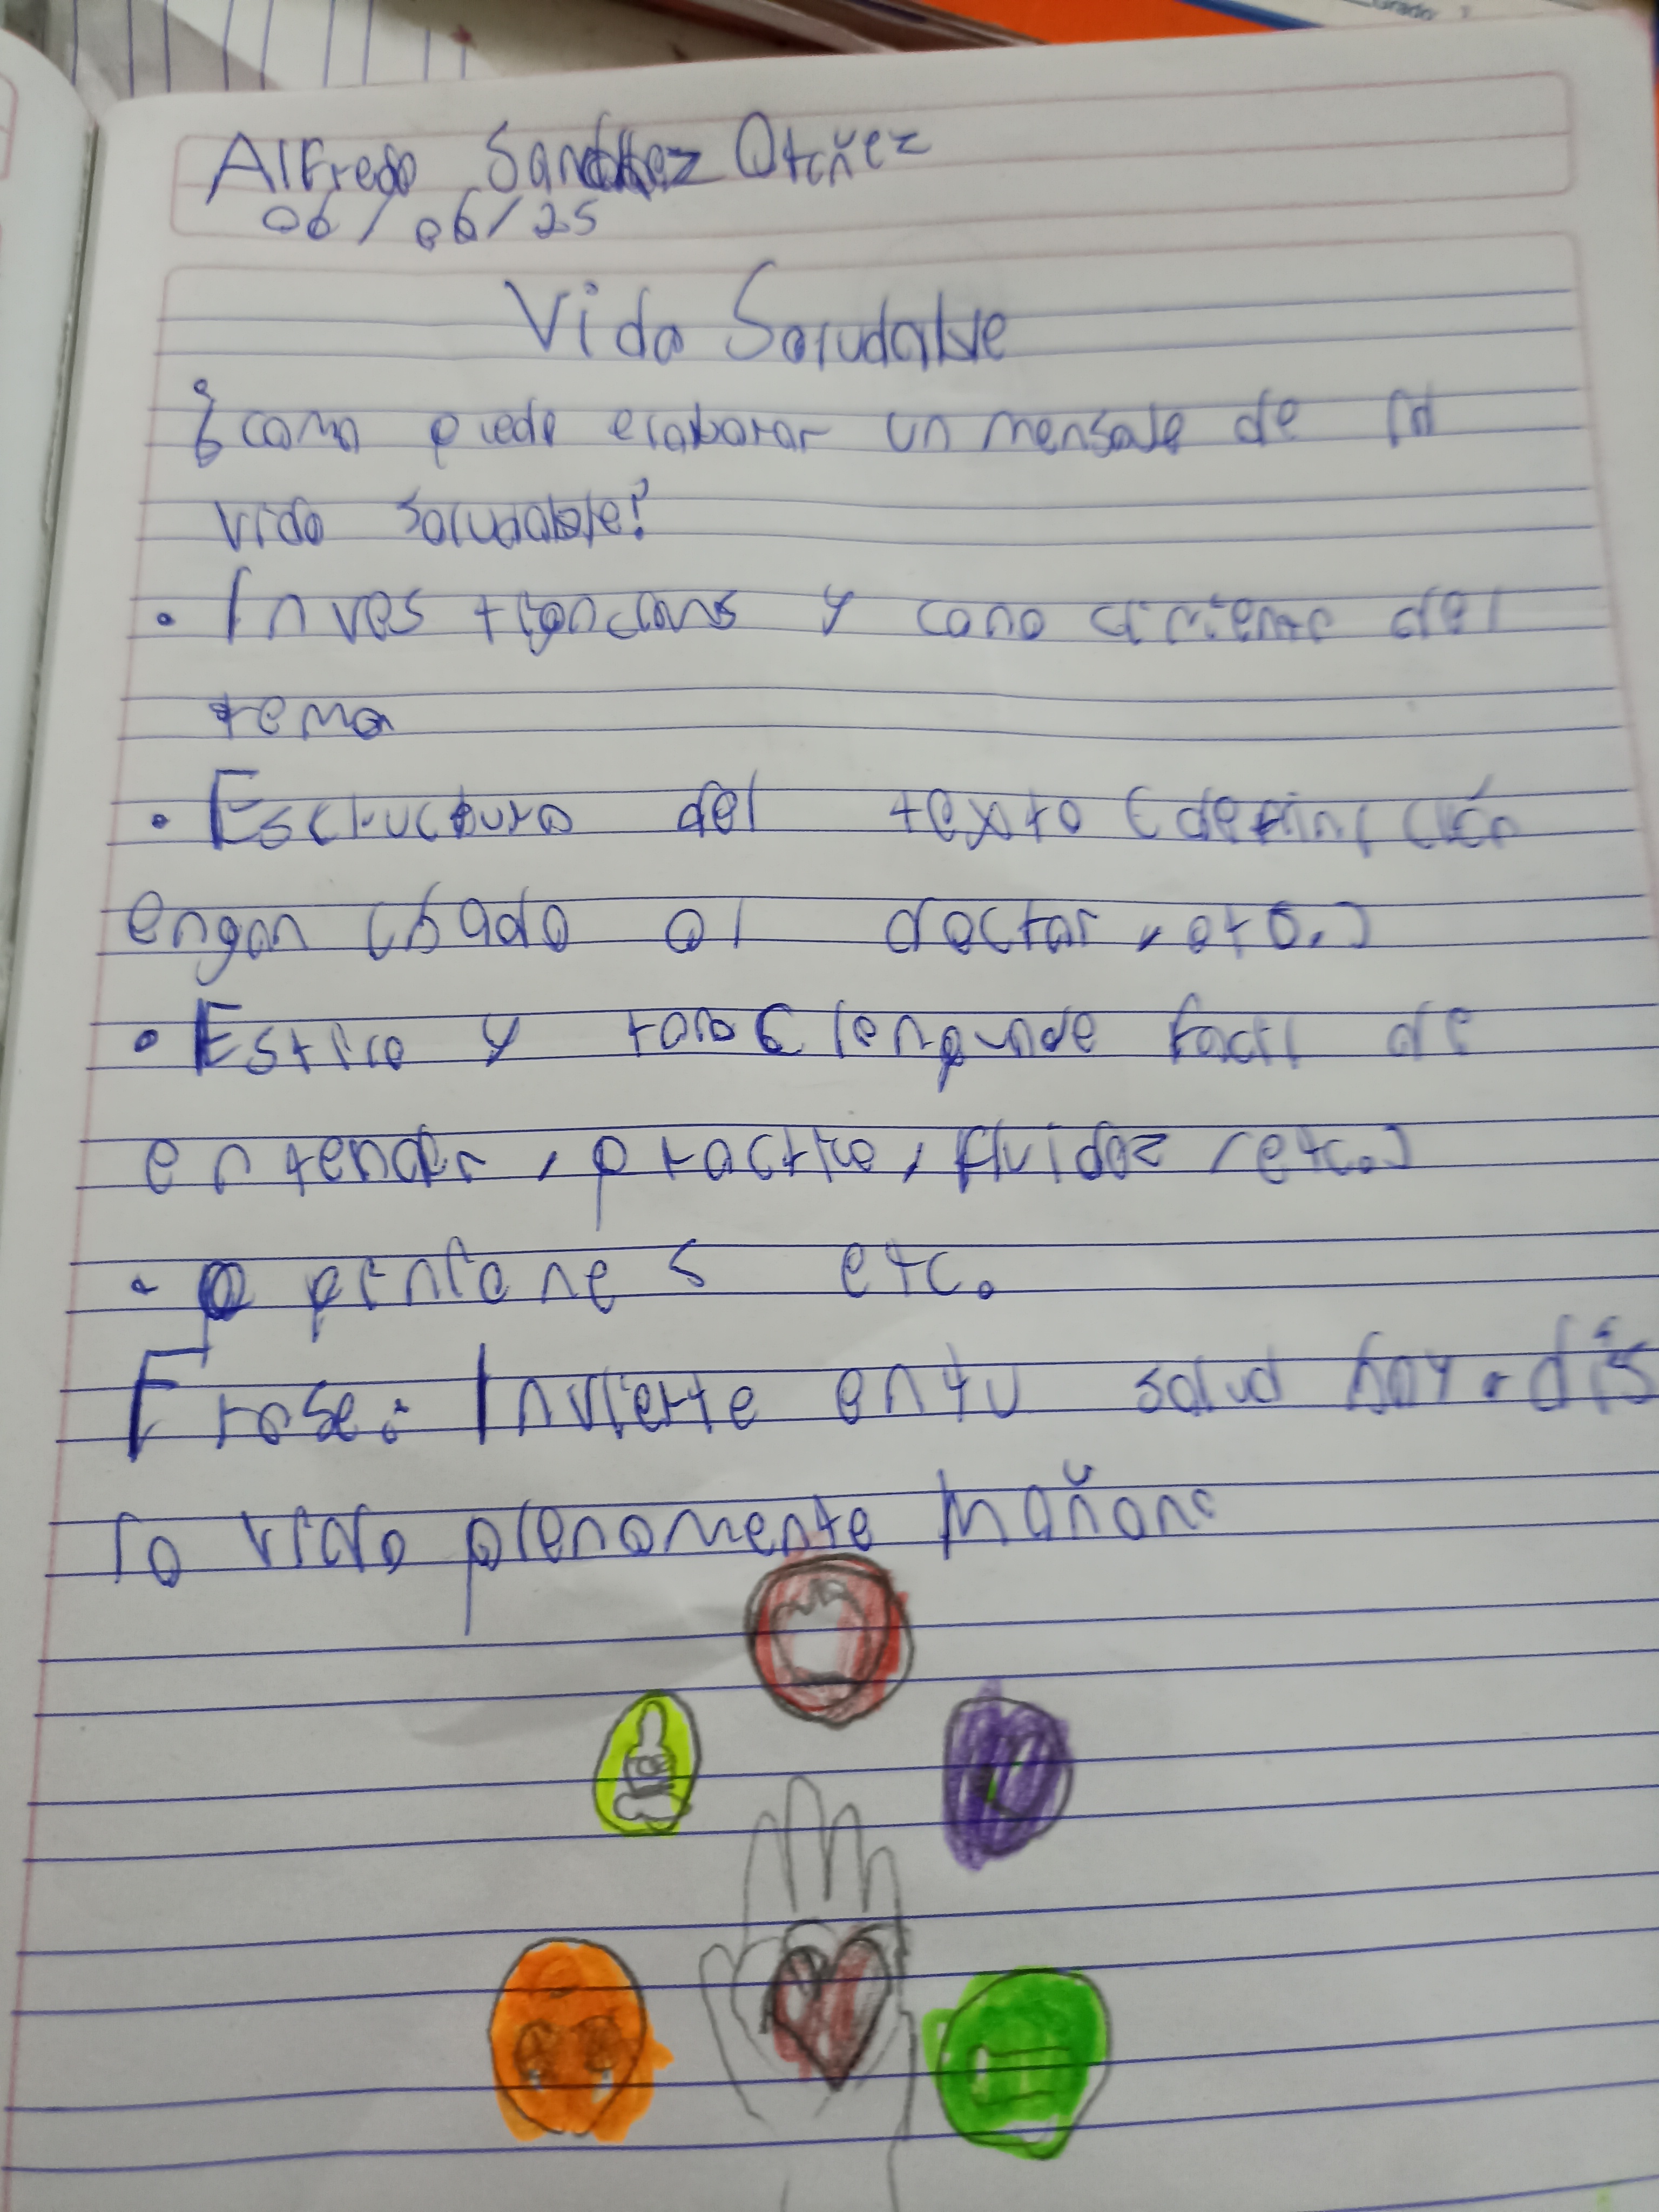 Grado
Alfredo Sanchez Otañez
06/06/25
Vida Saludable
¿como puede elaborar un mensaje de la
vida saludable?
• Inves y cono cimiento del
tema
• Esctructura del texto (definición
engan chado al doctor, etc.)
• Estilo y tono (lenguade facil de
entender, practico, fluidez, etc.)
• opiniones etc.
Frase: Invierte en tu salud hoy. dis
la vida plenamente Mañana